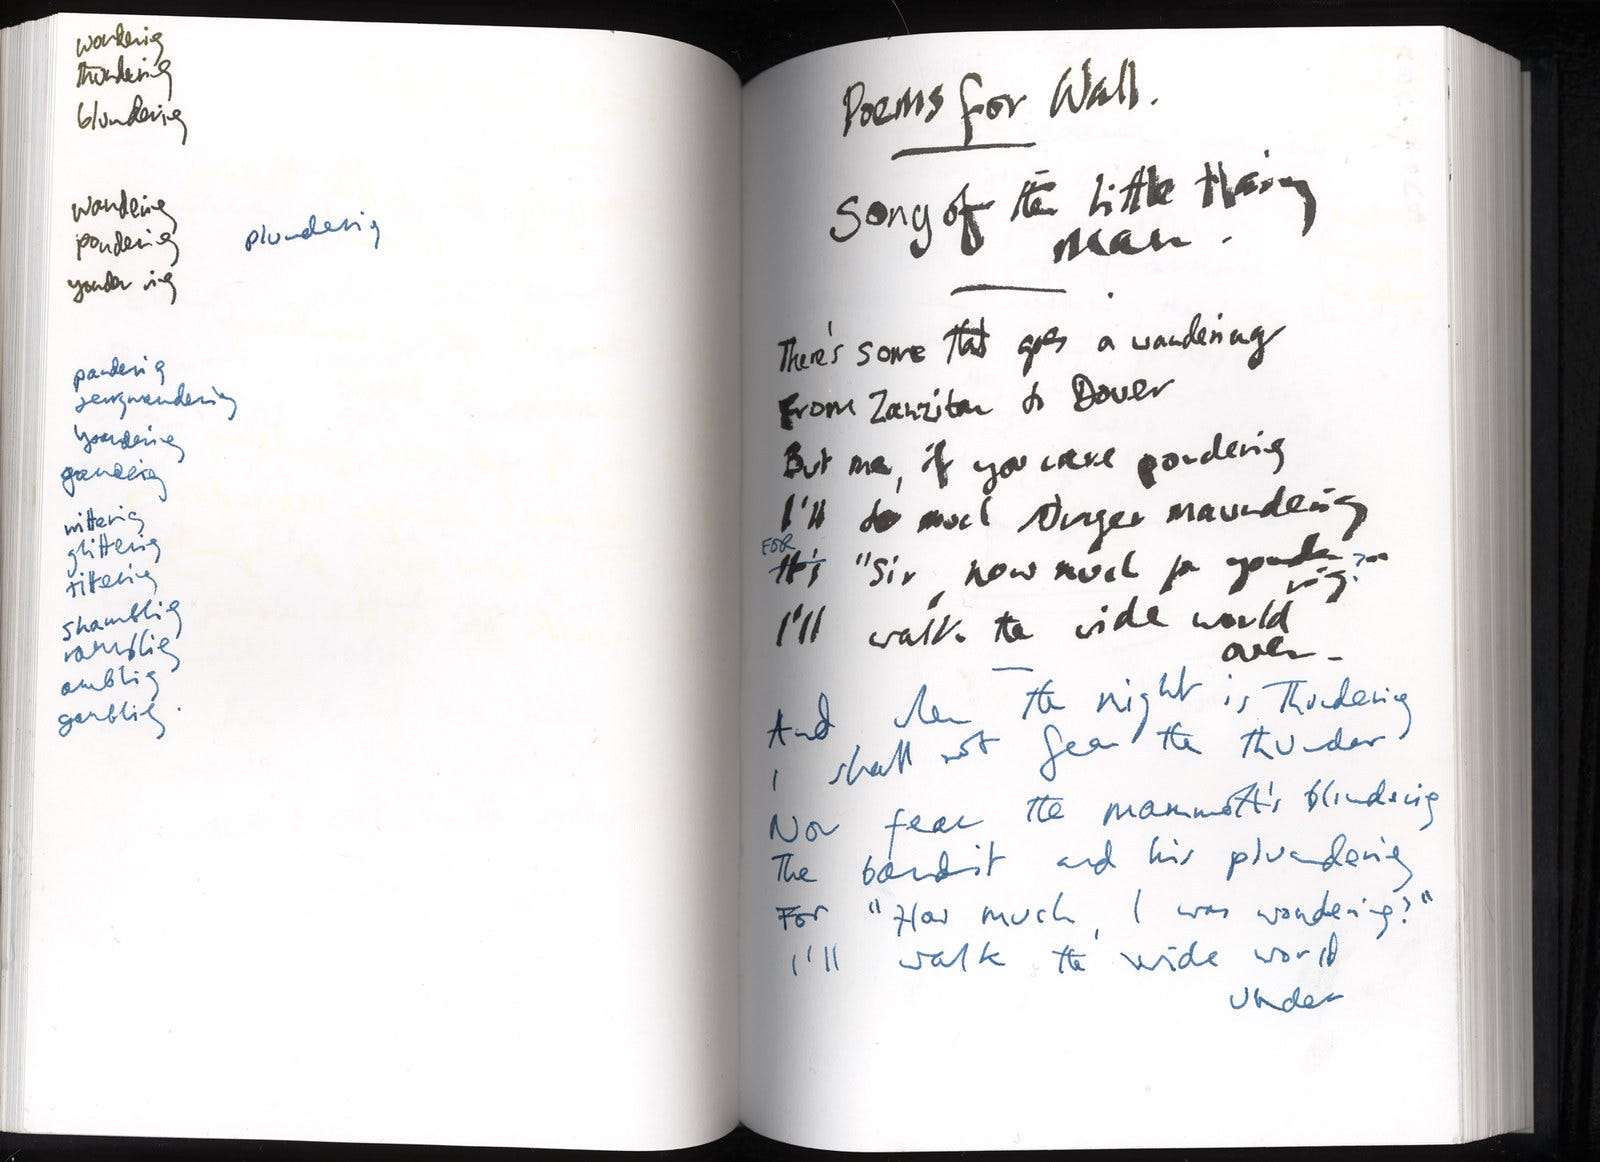 wondering
thundering
blundering
wandering
pondering
plundering
yonder ing
pandering
gerrymandering
yondering
gandering
wittering
glittering
tittering
shambling
rambling
ambling
garbling.
Poems for Wall.
Song of the Little Hairy
man.
There's some that goes a wandering
From Zanzibar to Dover
But me, if you were pondering
I'll do much maundering
FOR
It's "Sir, how much for
I'll walk the wide world
over.
And when the night is Thundering
I shall not fear the thunder
Nor fear the mammoth's blundering
The bandit and his plundering
For "How much, I was wondering?"
I'll walk the wide world
under